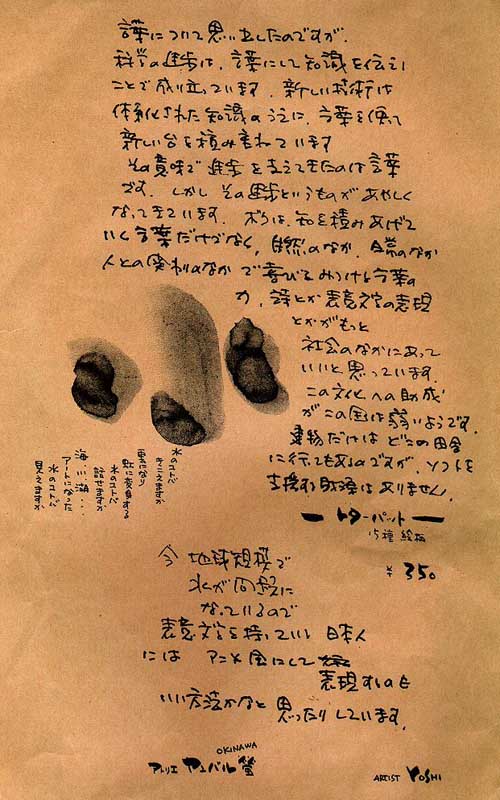 言葉について思い立したのですが、
科学の進歩は、言葉にして知識を伝え
ことで成り立っています。新しい技術は
体系化された知識のうえに、言葉を使って
新しい台を積み重ねています
その意味で進歩を支えてきたのは言葉
です。しかしその進歩というものがあやしく
なってきています。ボクは、知を積みあげて
いく言葉だけでなく、自然のなか、日常のなか
人との関わりのなかで喜びをみつける言葉の
力、詩とか表意文字の表現
とかがもっと
社会のなかにあって
いいと思っています。
この文化への助成
がこの国は弱いようです。
建物だけはどこの田舎
に行ってもあるのですが、ソフトを
支援する財源はありません。
水のコトバ
きこえますか
雲になり
水のコトバ
海に・・・
水のコトバ
見えますか
ー トターパット ー
15種 絵柄
¥350
今 地球規模で
水が問題に
なっているので
表意文字を持っている 日本人
には アニメ画にして
表現するのも
いい方法かなと 思ったりしています。
OKINAWA
アトリエ アユバル 蛍
ARTIST YOSHI